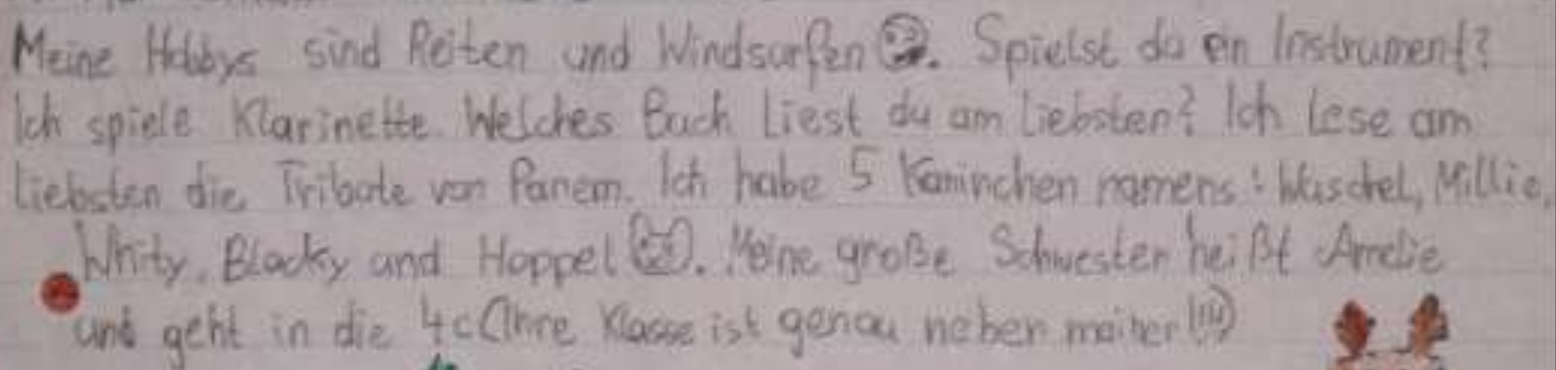 Meine Hobbys sind Reiten und Windsurfen. Spielst du ein Instrument?
Ich spiele Klarinette. Welches Buch liest du am liebsten? Ich lese am
liebsten die Tribute von Panem. Ich habe 5 Kaninchen namens: Wuschel, Millie,
Whity, Blacky und Hoppel. Meine große Schwester heißt Amelie
und geht in die 4c (Ihre Klasse ist genau neben meiner!!!)